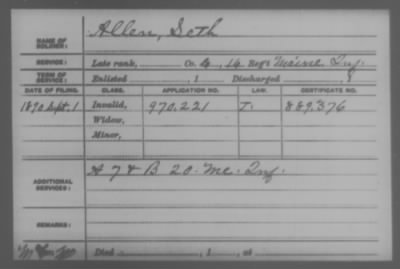 NAME OF SOLDIER: Allen, Seth
SERVICE: Late rank, Co. G, 16 Reg't Maine Inf.
TERM OF SERVICE: Enlisted , 1 Discharged , 1
DATE OF FILING. CLASS. APPLICATION NO. LAW. CERTIFICATE NO.
1890 Sept. 1 Invalid, 970.221 J. 889.376
Widow,
Minor,
ADDITIONAL SERVICES: A 7 & B 20. Me. Inf.
REMARKS:
Died , 1 , at